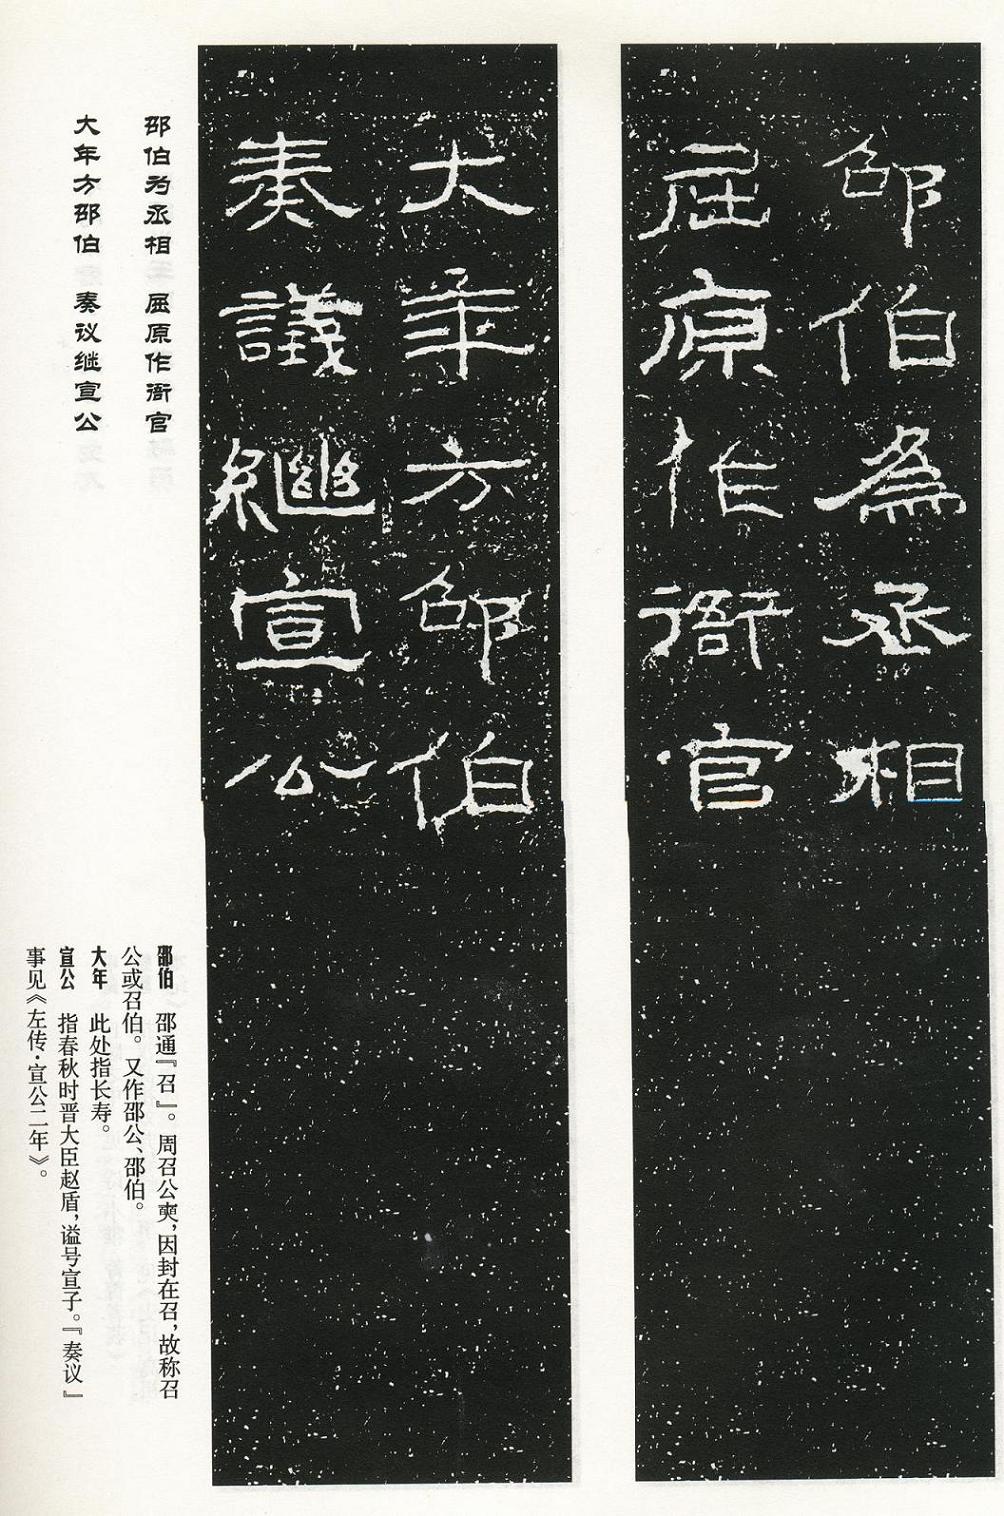 邵伯為丞相
屈原作衙官
大年方邵伯
奏議繼宣公
邵伯为丞相 屈原作衙官
大年方邵伯 奏议继宣公
邵伯 邵通『召』。周召公奭，因封在召，故称召
公或召伯。又作邵公、邵伯。
大年 此处指长寿。
宣公 指春秋时晋大臣赵盾，谥号宣子。『奏议』
事见《左传·宣公二年》。